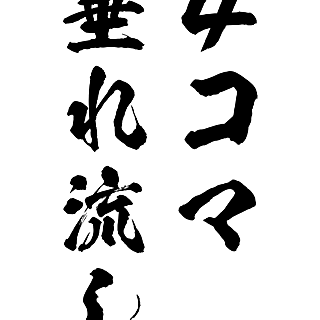 4コマ
垂れ流し